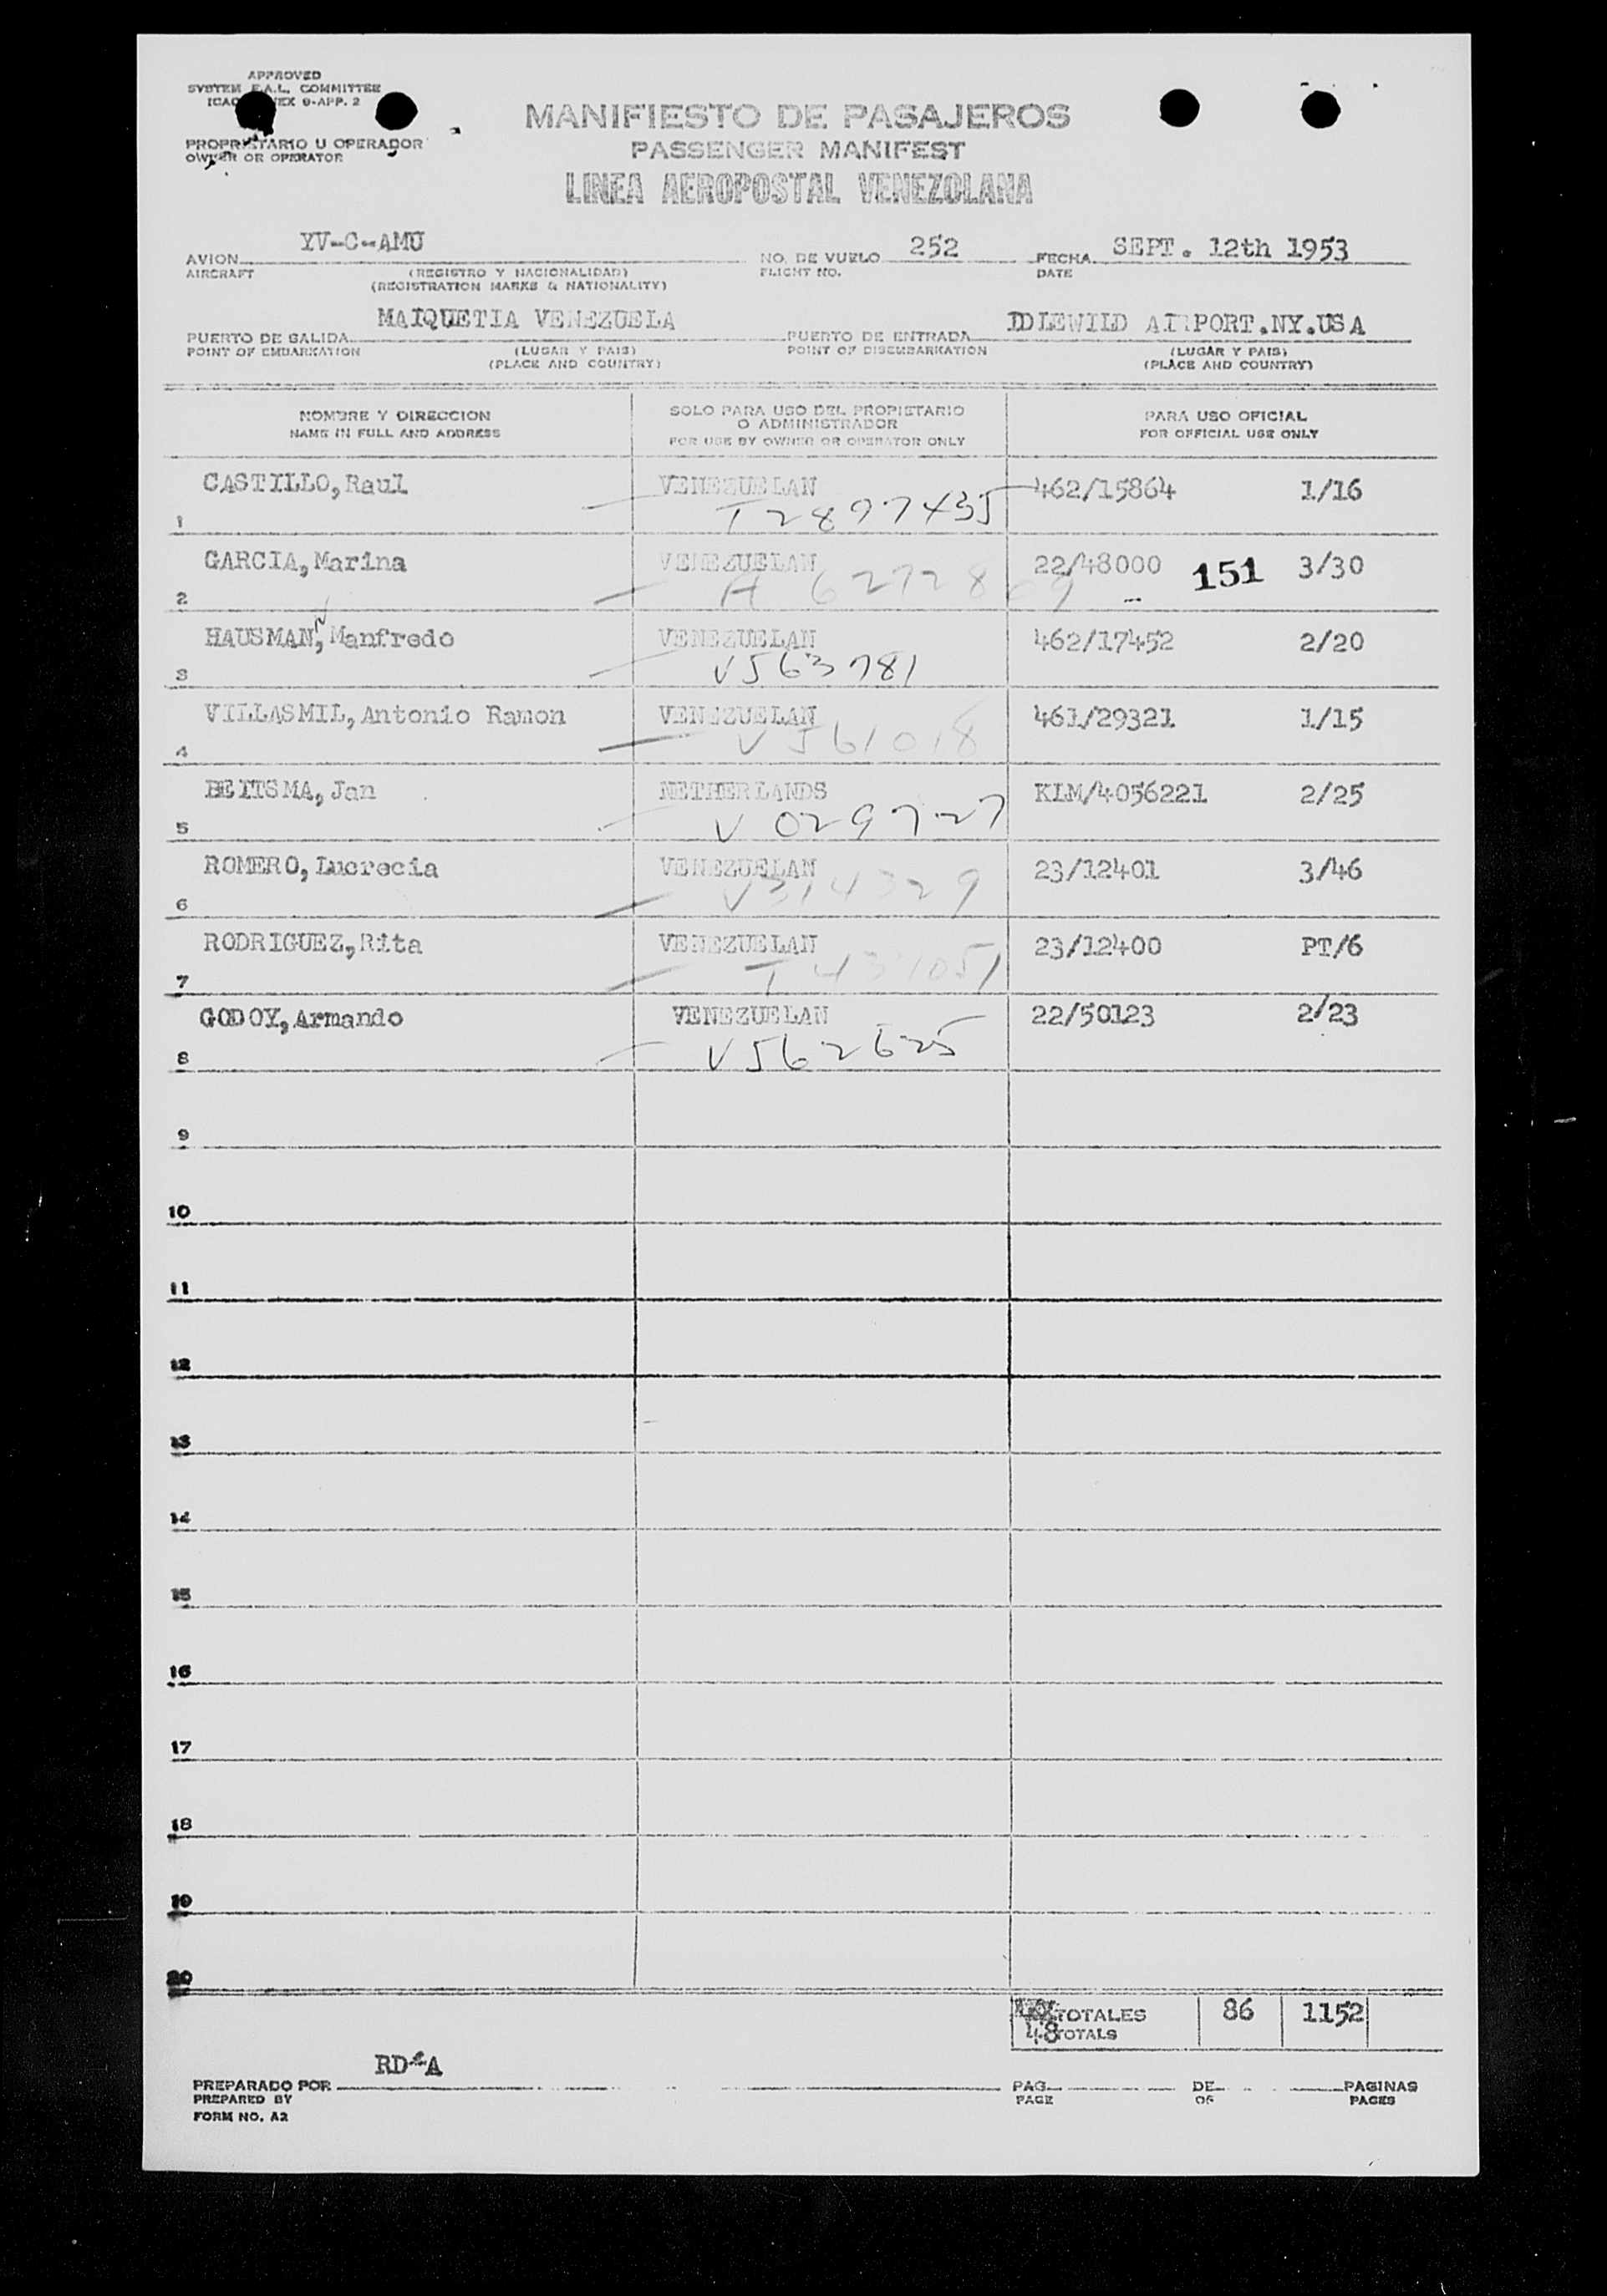 APPROVED
SYSTEM F.A.L. COMMITTEE
9-APP. 2
PROPRIETARIO U OPERADOR
OWNER OR OPERATOR
MANIFIESTO DE PASAJEROS
PASSENGER MANIFEST
LINEA AEROPOSTAL VENEZOLANA
AVION YV-C-AMU NO. DE VUELO 252 FECHA SEPT. 12th 1953
AIRCRAFT (REGISTRO Y NACIONALIDAD) FLIGHT NO. DATE
(REGISTRATION MARKS & NATIONALITY)
PUERTO DE SALIDA MAIQUETIA VENEZUELA PUERTO DE ENTRADA IDLEWILD AIRPORT.NY.USA
POINT OF EMBARKATION (LUGAR Y PAIS) POINT OF DISEMBARKATION (LUGAR Y PAIS)
(PLACE AND COUNTRY) (PLACE AND COUNTRY)
NOMBRE Y DIRECCION SOLO PARA USO DEL PROPIETARIO O ADMINISTRADOR PARA USO OFICIAL
NAME IN FULL AND ADDRESS FOR USE BY OWNER OR OPERATOR ONLY FOR OFFICIAL USE ONLY
CASTILLO, Raul VENEZUELAN 462/15864 1/16
1 T2897435
GARCIA, Marina VENEZUELAN 22/48000 151 3/30
2 A 6272809
HAUSMAN, Manfredo VENEZUELAN 462/17452 2/20
3 V563781
VILLASMIL, Antonio Ramon VENEZUELAN 461/29321 1/15
4 V561018
BEITSMA, Jan NETHERLANDS KLM/4056221 2/25
5 V029727
ROMERO, Lucrecia VENEZUELAN 23/12401 3/46
6 V314329
RODRIGUEZ, Rita VENEZUELAN 23/12400 PT/6
7 T431051
GODOY, Armando VENEZUELAN 22/50123 2/23
8 V562625
9
10
11
12
13
14
15
16
17
18
19
20
TOTALES 86 1152
48 TOTALS
PREPARADO POR RD-A PAG. DE PAGINAS
PREPARED BY PAGE OF PAGES
FORM NO. A2